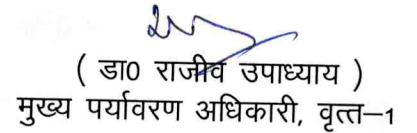 ( डा0 राजीव उपाध्याय )
मुख्य पर्यावरण अधिकारी, वृत्त–1